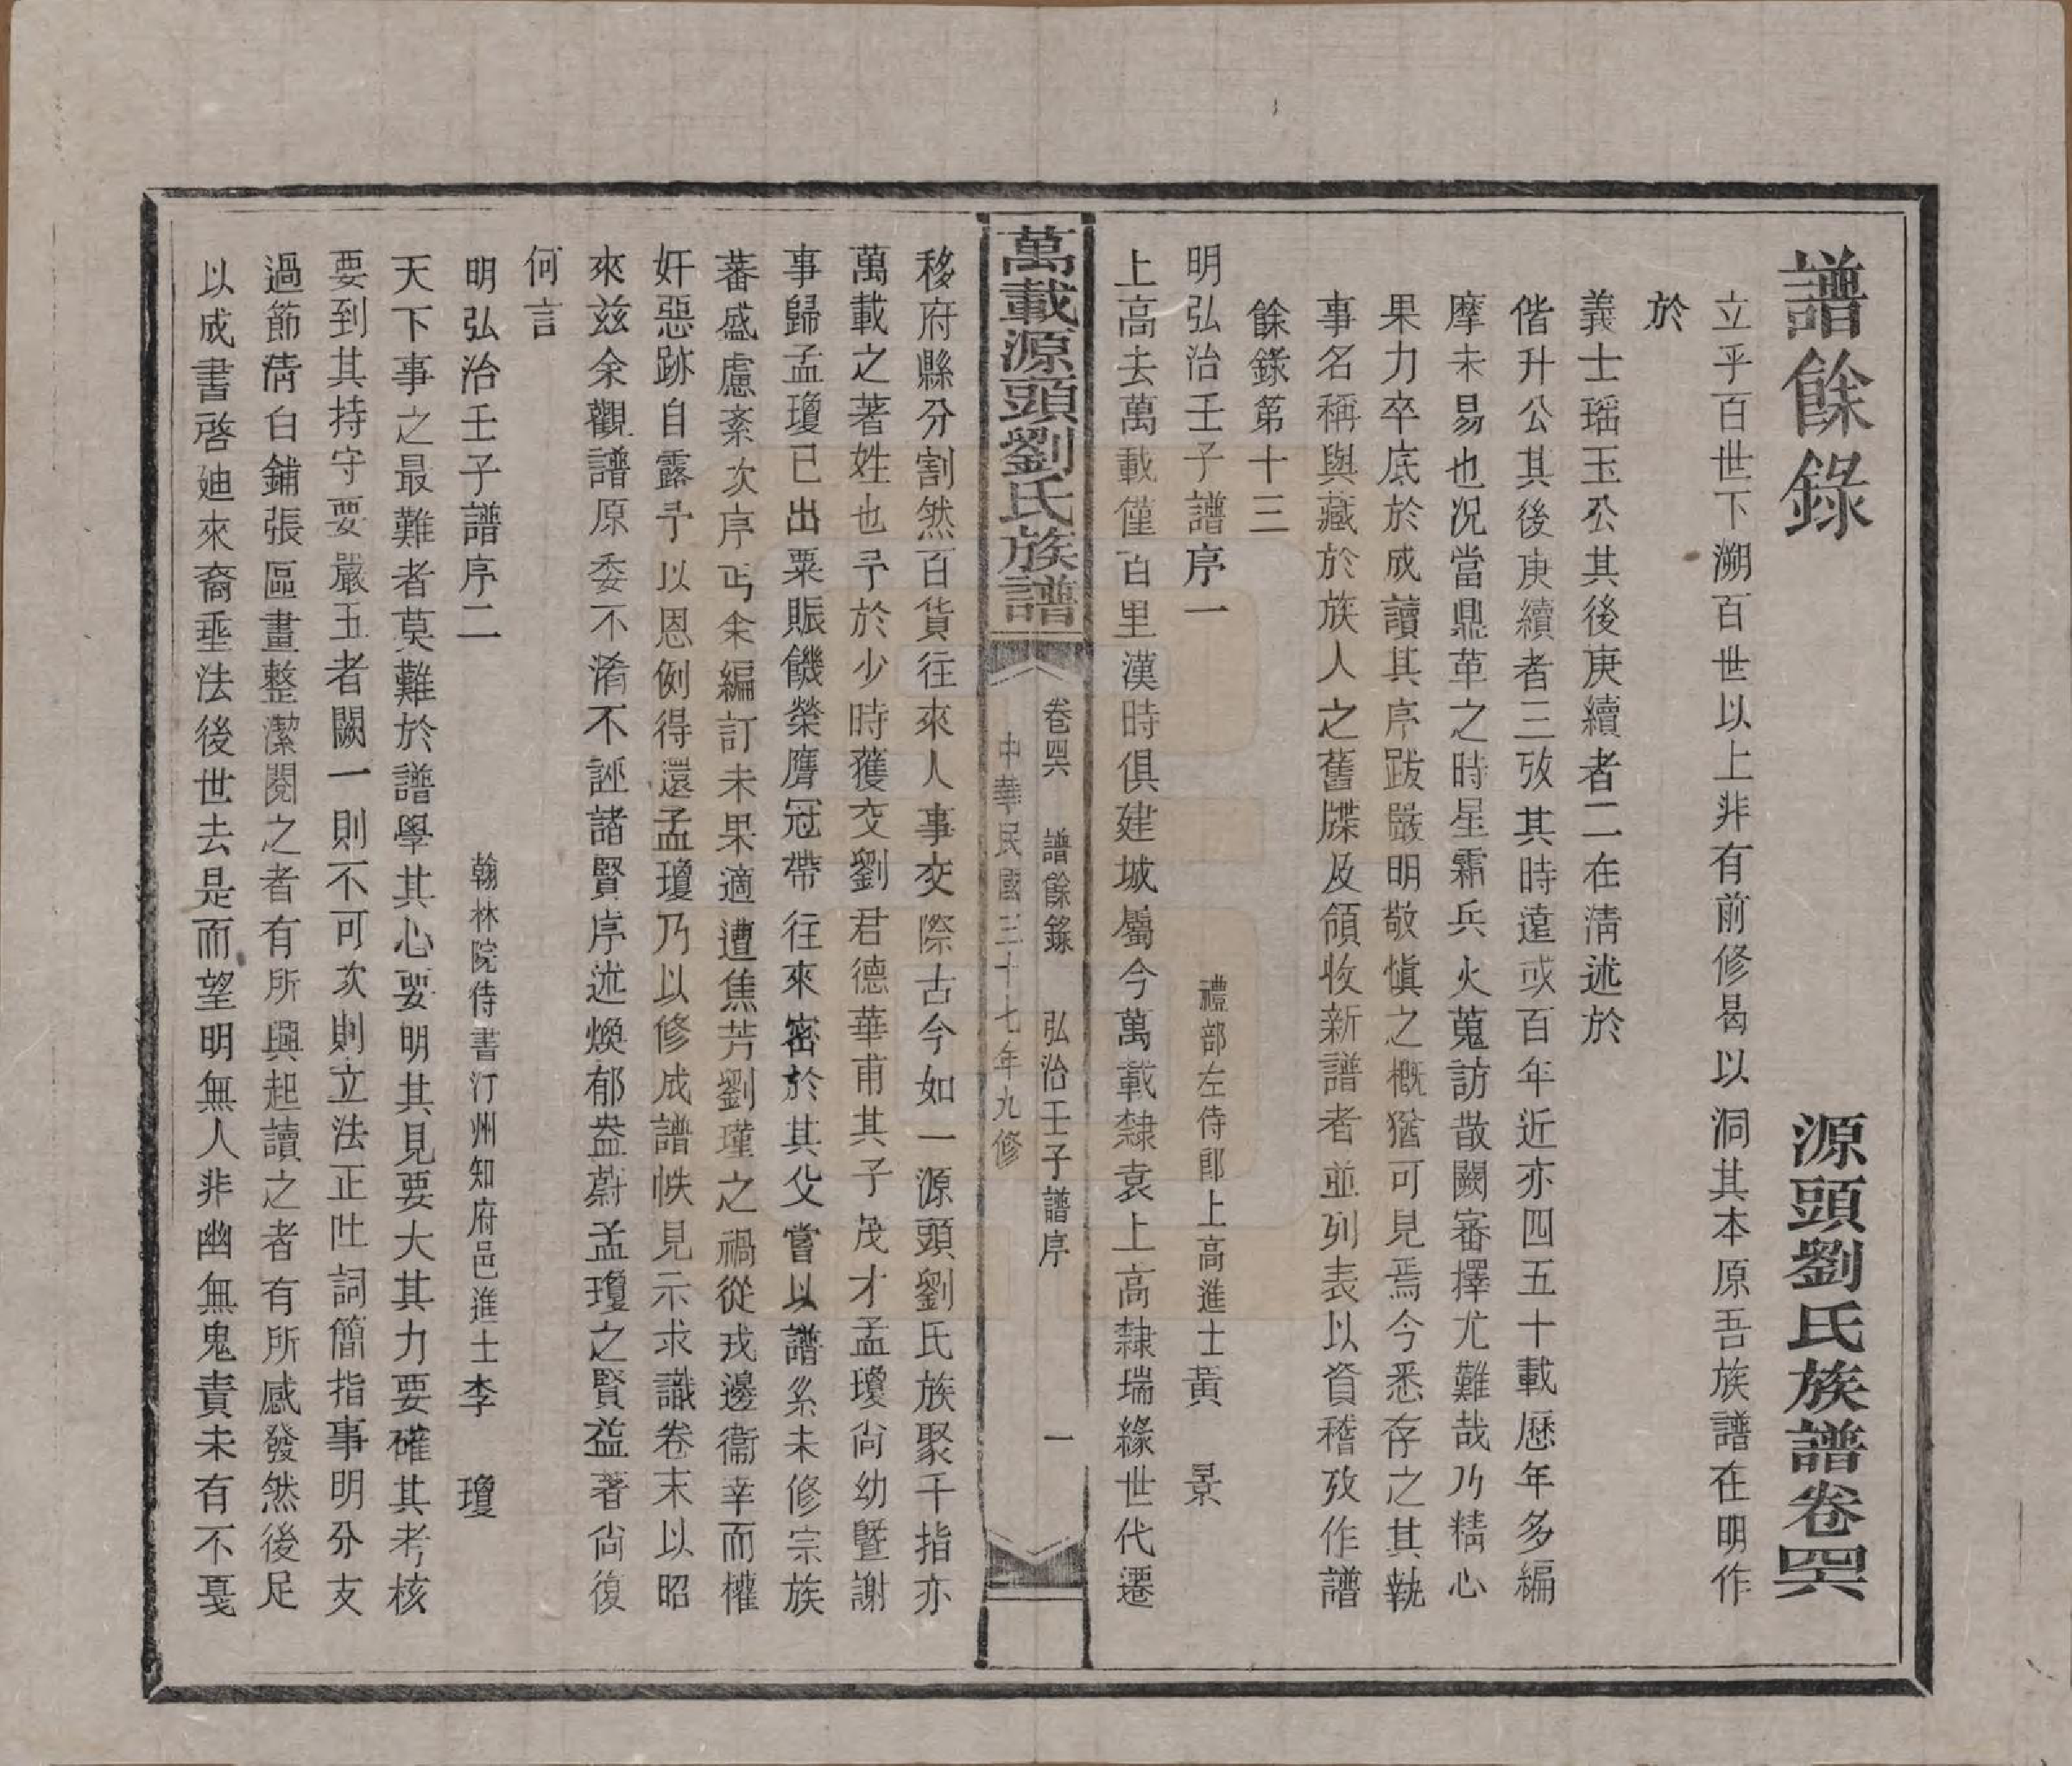 譜餘錄　源頭劉氏族譜卷四六
立乎百世下溯百世以上非有前修曷以洞其本原吾族譜在明作
於
義士瑶玉公其後庚續者二在清述於
偕升公其後庚續者三攷其時遠或百年近亦四五十載歷年多編
摩未易也况當鼎革之時星霜兵火蒐訪散闕審擇尤難哉乃精心
果力卒底於成讀其序跋嚴明敬慎之概猶可見焉今悉存之其執
事名稱與藏於族人之舊牒及領收新譜者並列表以資稽攷作譜
餘錄第十三
明弘治壬子譜序一　禮部左侍郎上高進士黃　景
上高去萬載僅百里漢時俱建城屬今萬載隸袁上高隸瑞緣世代遷
萬載源頭劉氏族譜
卷四六　譜餘錄　弘治壬子譜序　一
中華民國三十七年九修
移府縣分割然百貨往來人事交際古今如一源頭劉氏族聚千指亦
萬載之著姓也予於少時獲交劉君德華甫其子茂才孟瓊尙幼暨謝
事歸孟瓊已出粟賑饑榮膺冠帶往來密於其父嘗以譜系未修宗族
蕃盛慮紊次序丐余編訂未果適遭焦芳劉瑾之禍從戎邊衞幸而權
奸惡跡自露予以恩例得還孟瓊乃以修成譜帙見示求識卷末以昭
來兹余觀譜原委不淆不誣諸賢序述煥郁盎蔚孟瓊之賢益著尙復
何言
明弘治壬子譜序二　翰林院侍書汀州知府邑進士李　瓊
天下事之最難者莫難於譜學其心要明其見要大其力要確其考核
要到其持守要嚴五者闕一則不可次則立法正吐詞簡指事明分支
過節淸白鋪張區畫整潔閱之者有所興起讀之者有所感發然後足
以成書啓廸來裔垂法後世去是而望明無人非幽無鬼責未有不戞